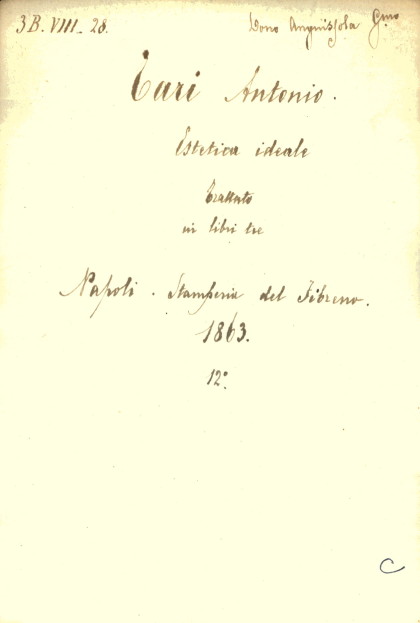 3 B. VIII - 28.
Dono Anguissola Gmo
Tari Antonio.
Estetica ideale
Trattato
in libri tre
Napoli. Stamperia del Fibreno.
1863.
12°
C